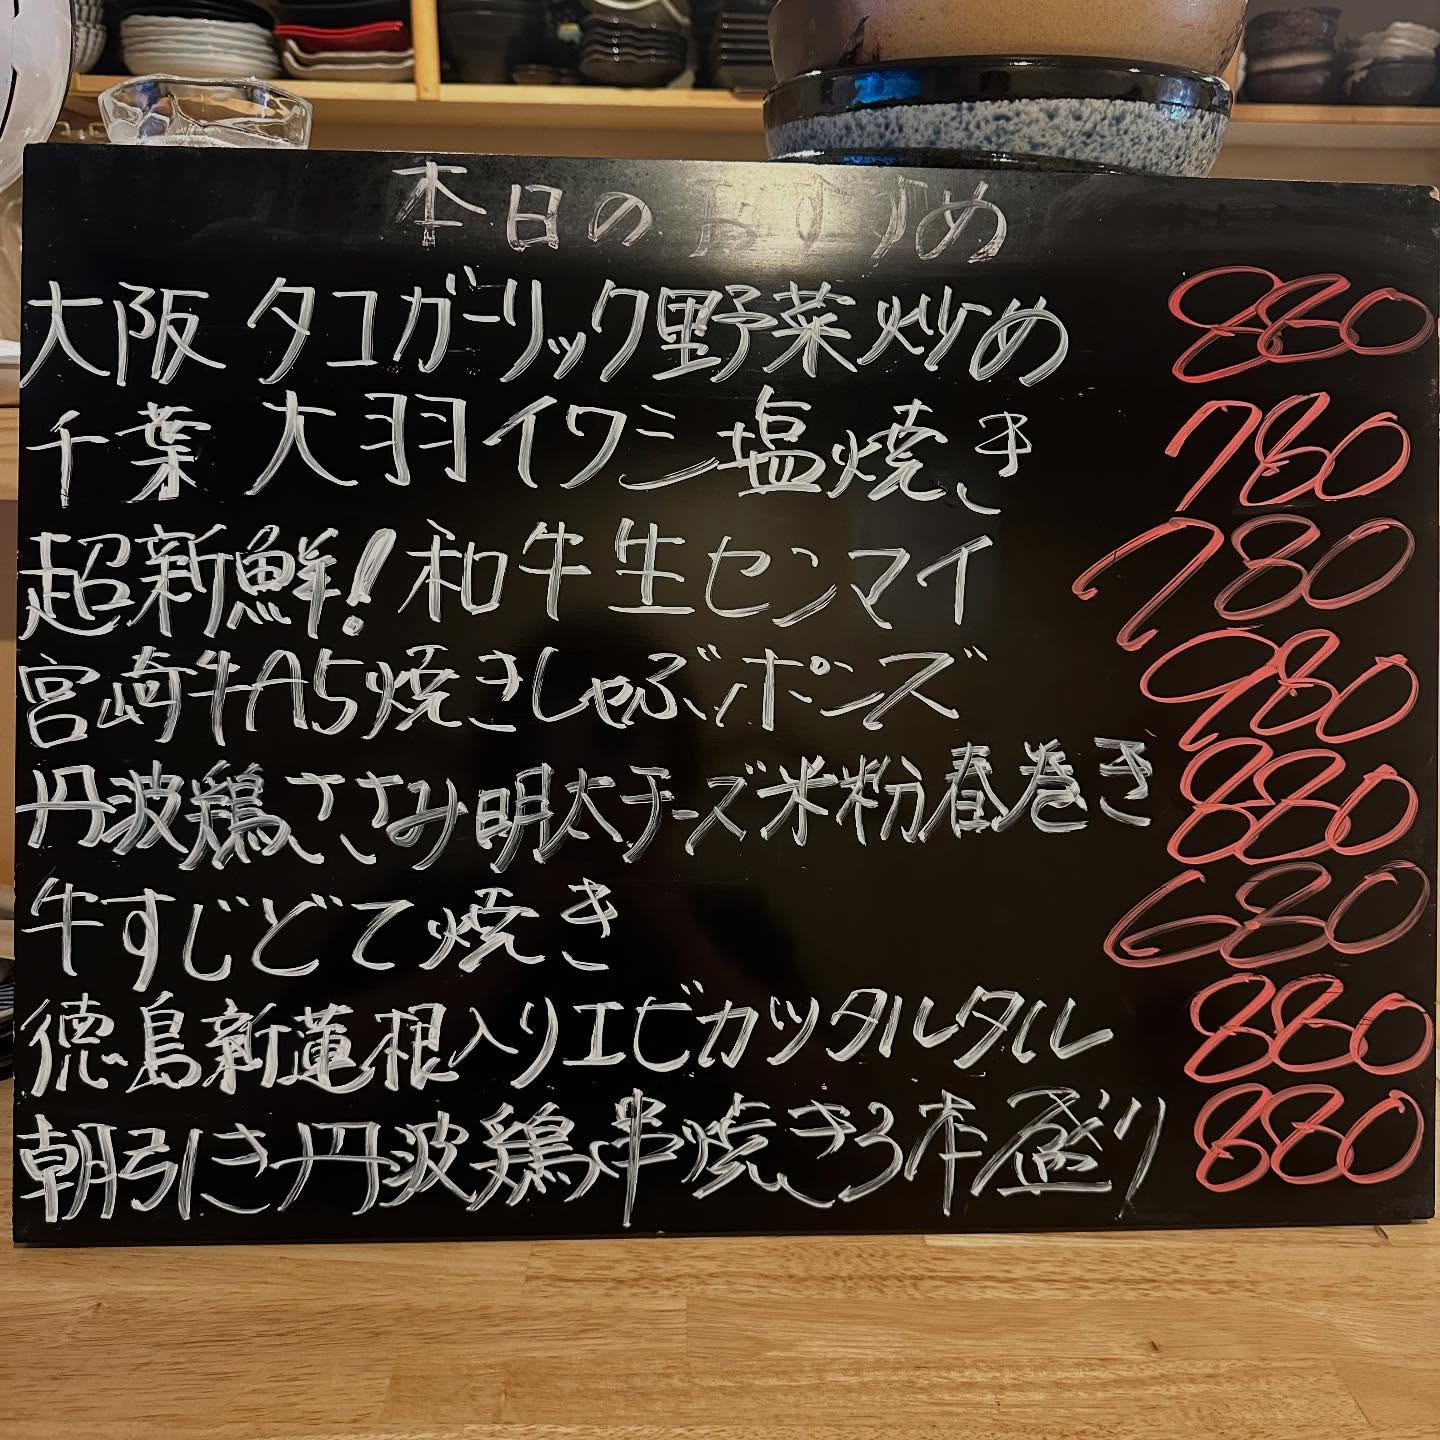 本日のおすすめ
大阪 タコガーリック野菜炒め 880
千葉 大羽イワシ塩焼き 780
超新鮮!和牛生センマイ 780
宮崎牛A5焼きしゃぶポンズ 980
丹波鶏ささみ明太チーズ米粉春巻き 880
牛すじどて焼き 680
徳島新蓮根入りエビカツタルタル 880
朝引き丹波鶏串焼き3本盛り 880